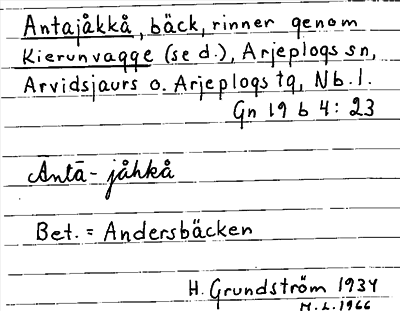 Antajåkkå, bäck, rinner genom
Kierunvagge (se d.), Arjeplogs sn,
Arvidsjaurs o. Arjeplogs tg, Nb. l.
Gn 19 b 4: 23
Antā- jåhkå
Bet. = Andersbäcken
H. Grundström 1934
M. L. 1966